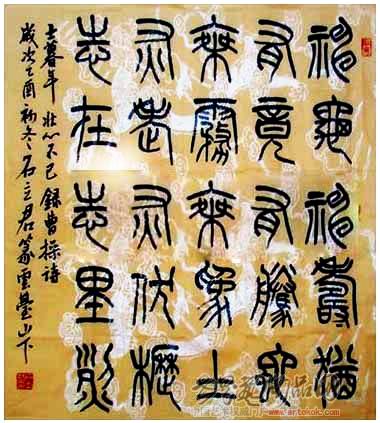 神龜神壽猶
有竟有騰蛇
乘霧乘為土
灰老灰伏櫪
志在志里烈
士暮年 壯心不已 錄曹操詩
歲次乙酉初冬石立君篆雲臺山下
www.artokok.com